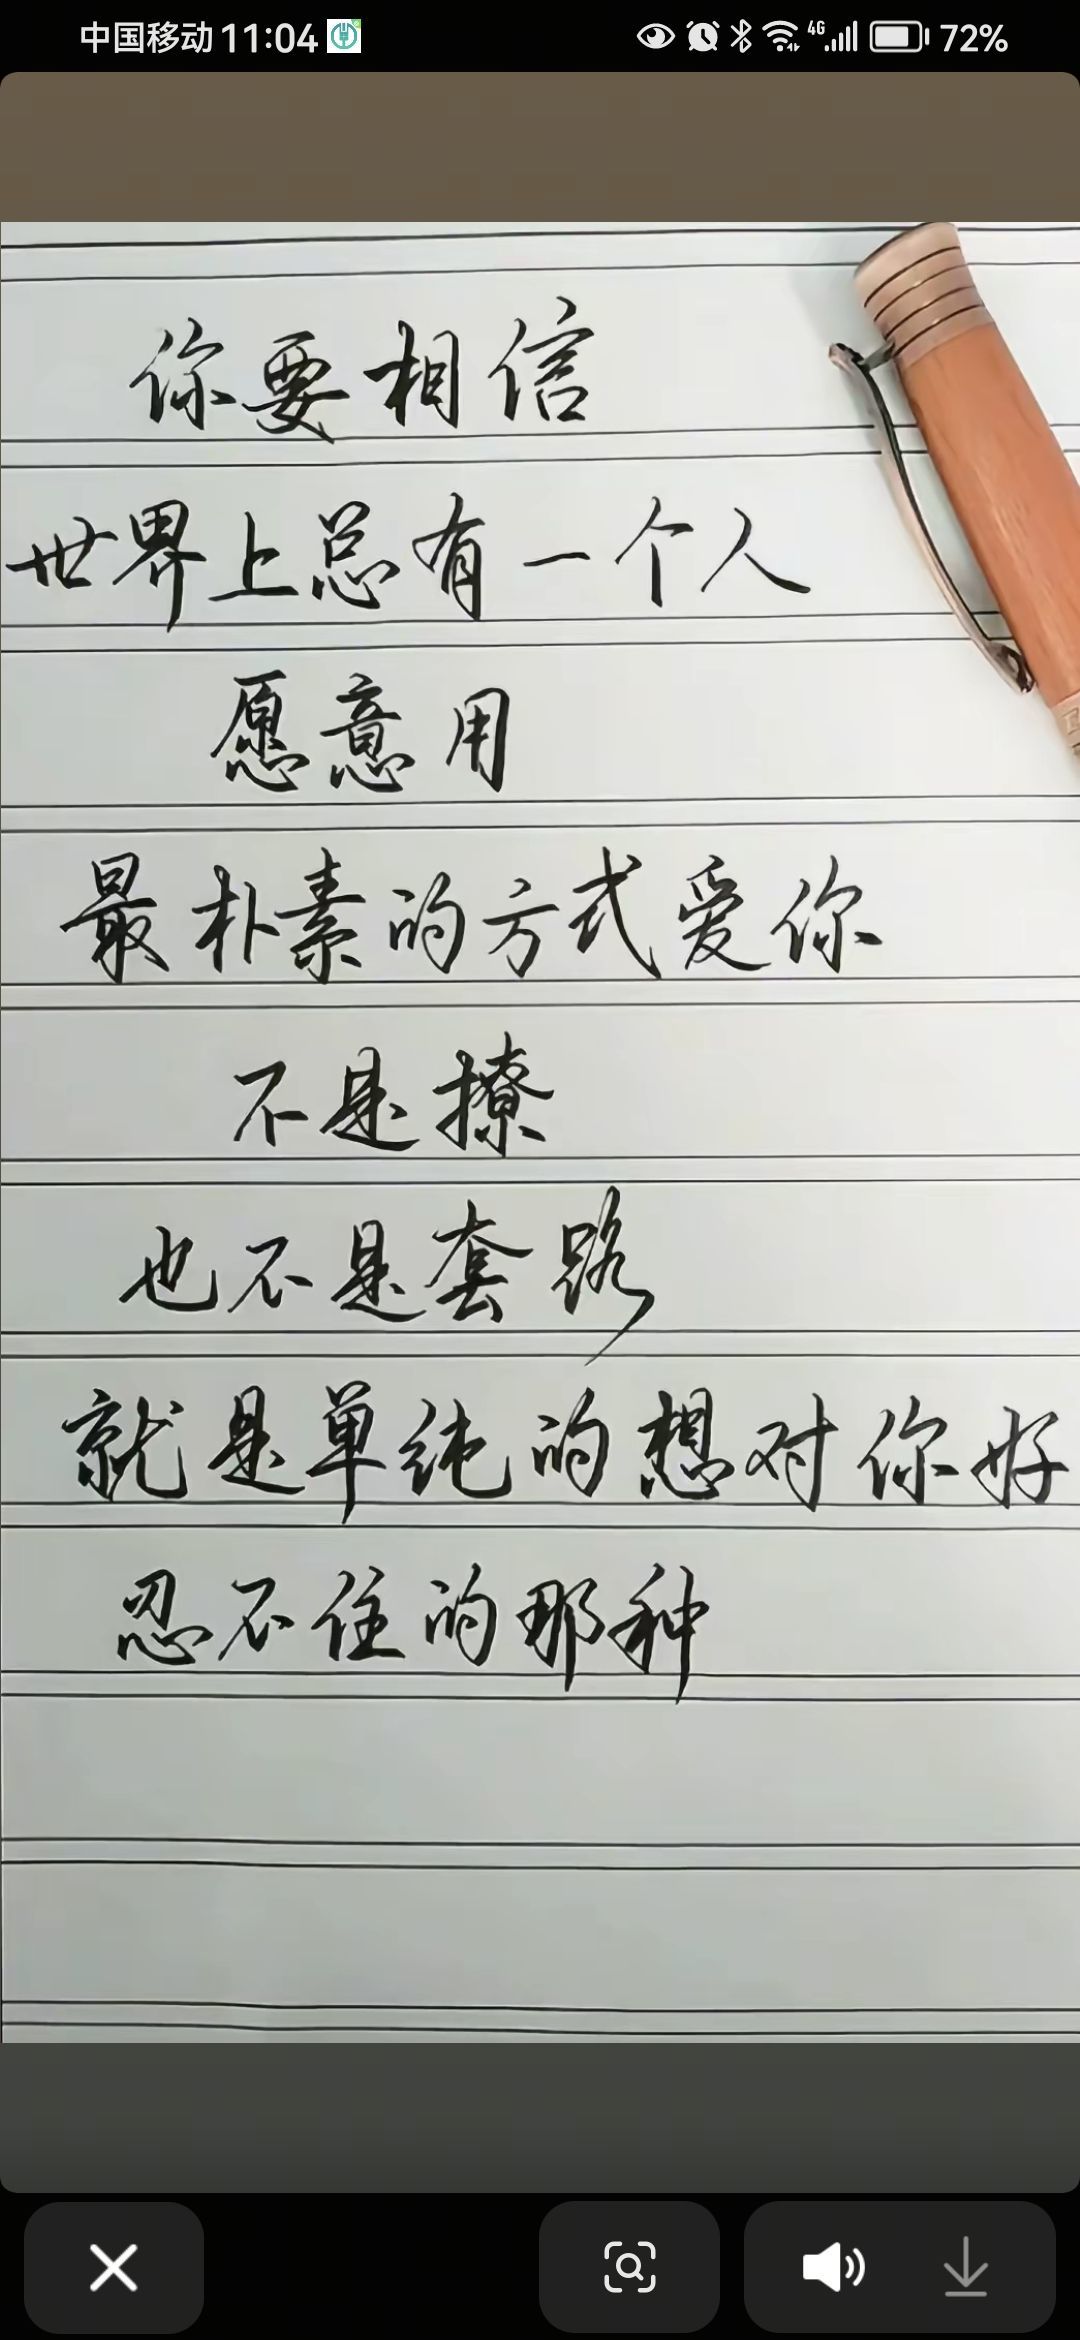 中国移动 11:04 4G 72%
你要相信
世界上总有一个人
愿意用
最朴素的方式爱你
不是撩
也不是套路
就是单纯的想对你好
忍不住的那种